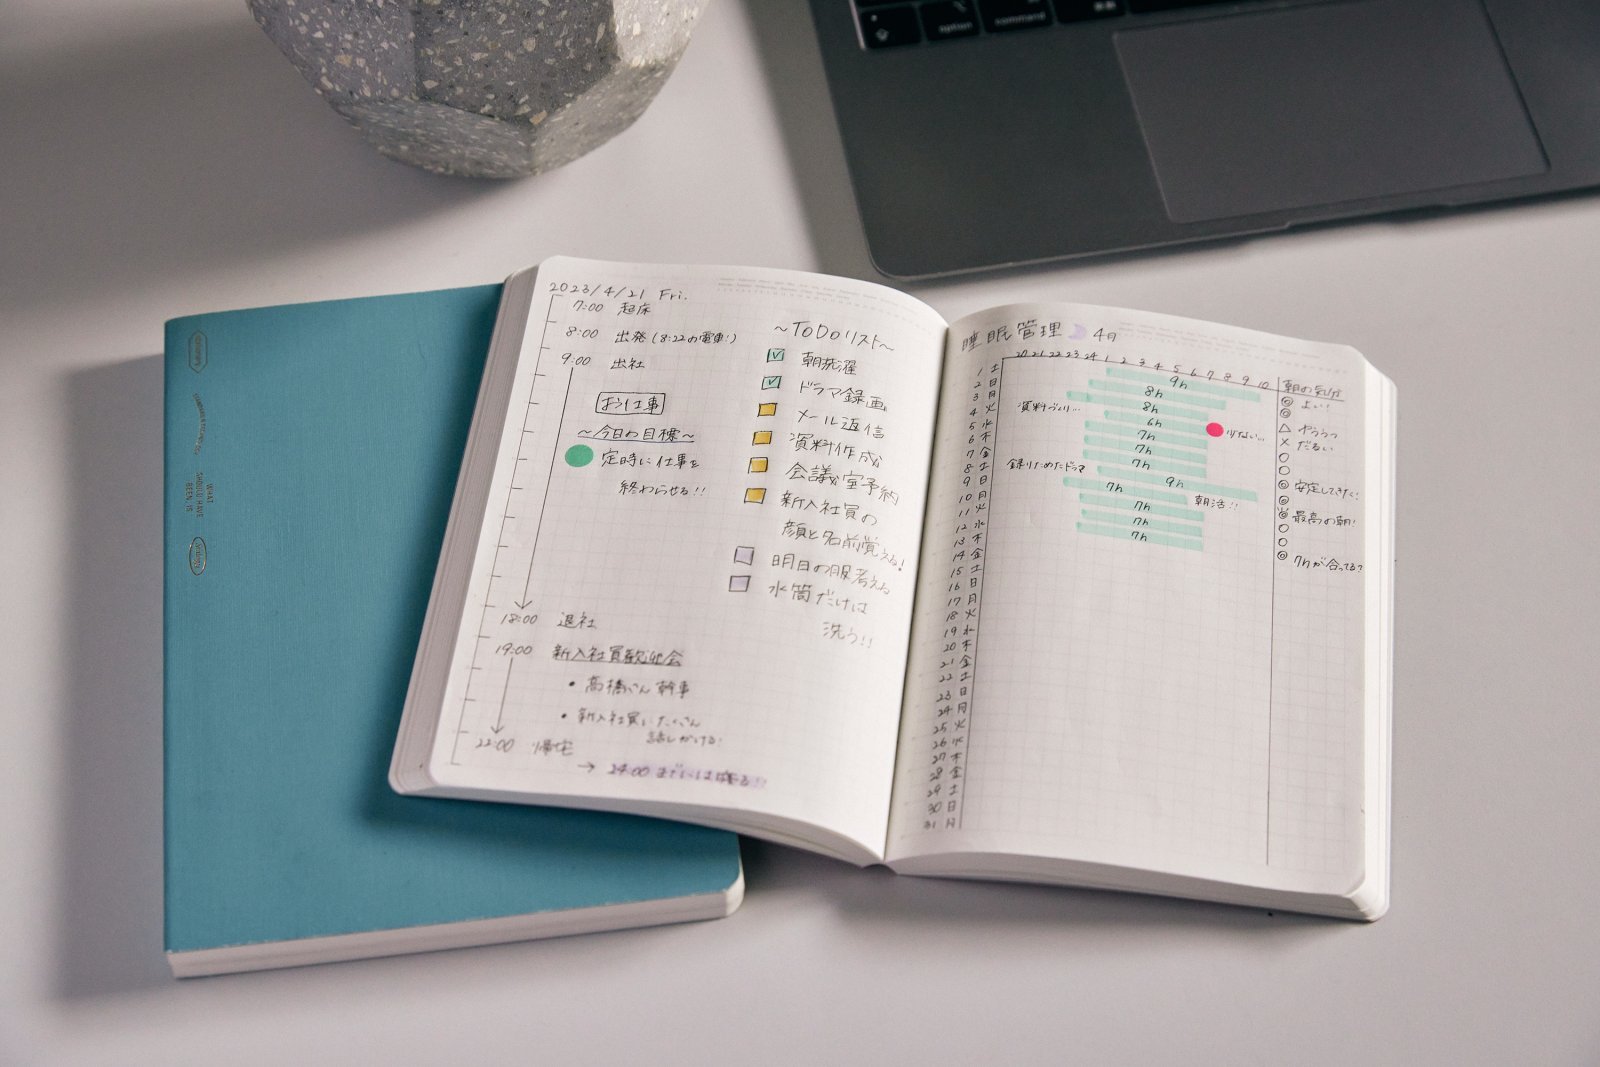 option
command
WHAT
SHOULD HAVE
BEEN, IS
2023/4/21 Fri.
7:00 起床
8:00 出発(8:22の電車!)
9:00 出社
お仕事
~今日の目標~
定時に仕事を
終わらせる!!
18:00 退社
19:00 新入社員歓迎会
• 高橋さん幹事
• 新入社員にたくさん
話しかける!
22:00 帰宅
→ 24:00までには寝る!!
~ToDoリスト~
朝洗濯
ドラマ録画
メール返信
資料作成
会議室予約
新入社員の
顔と名前覚える!
明日の服考える
水筒だけは
洗う!!
睡眠管理 4月
20 21 22 23 24 1 2 3 4 5 6 7 8 9 10
朝の気分
1 土 9h ◎ よい!
2 日 8h ◎
3 月 8h △ やうつ
4 火 資料づくり... 6h 少ない... × だるい
5 水 7h ○
6 木 7h ○
7 金 7h ◎ 安定してきた!
8 土 録りためたドラマ 9h ◎
9 日 7h 朝活!! 最高の朝!
10 月 7h ○
11 火 7h ○
12 水 7h ◎ 7hが合ってる?
13 木
14 金
15 土
16 日
17 月
18 火
19 水
20 木
21 金
22 土
23 日
24 月
25 火
26 水
27 木
28 金
29 土
30 日
31 月